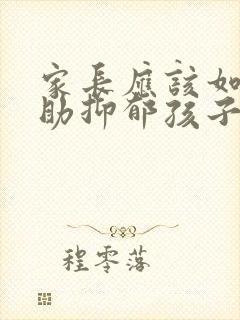 家長應該如
助抑郁孩子
程零落